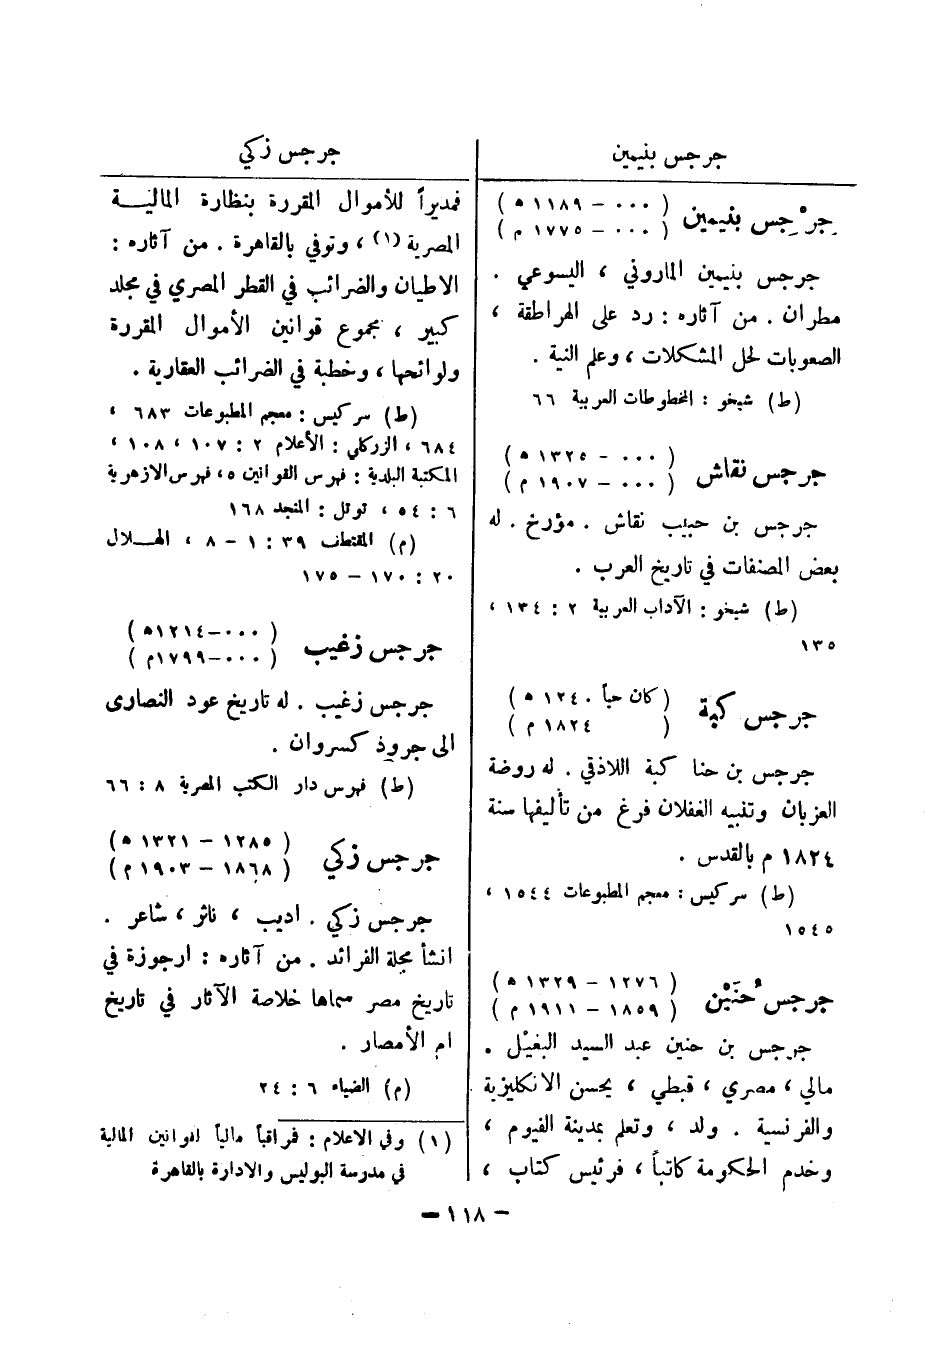 جرجس بنيمين
جرْجِس بنيمين
( ٠٠٠ – ١١٨٩ ه )
( ٠٠٠ – ١٧٧٥ م )
جرجس بنيمين الماروني ، اليسوعي .
مطران . من آثاره : رد على الهراطقة ،
الصعوبات لحل المشكلات ، وعلم النية .
(ط) شيخو : المخطوطات العربية ٦٦
جرجس نقاش
( ٠٠٠ – ١٣٢٥ ه )
( ٠٠٠ – ١٩٠٧ م )
جرجس بن حبيب نقاش . مؤرخ . له
بعض المصنفات في تاريخ العرب .
(ط) شيخو : الآداب العربية ٢ : ١٣٤ ،
١٣٥
جرجس كبة
( كان حياً ١٢٤٠ ه )
( ١٨٢٤ م )
جرجس بن حنا كبة اللاذقي . له روضة
العزبان وتنبيه الغفلان فرغ من تأليفها سنة
١٨٢٤ م بالقدس .
(ط) سركيس : معجم المطبوعات ١٥٤٤ ،
١٥٤٥
جرجس حُنَيْن
( ١٢٧٦ – ١٣٢٩ ه )
( ١٨٥٩ – ١٩١١ م )
جرجس بن حنين عبد السيد البغيْل .
مالي ، مصري ، قبطي ، يحسن الانكليزية
والفرنسية . ولد ، وتعلم بمدينة الفيوم ،
وخدم الحكومة كاتباً ، فرئيس كتاب ،
جرجس زكي
فمديراً للأموال المقررة بنظارة المالية
المصرية (١) ، وتوفي بالقاهرة . من آثاره :
الاطيان والضرائب في القطر المصري في مجلد
كبير ، مجموع قوانين الأموال المقررة
ولوائحها ، وخطبة في الضرائب العقارية .
(ط) سركيس : معجم المطبوعات ٦٨٣ ،
٦٨٤ ، الزركلي : الأعلام ٢ : ١٠٧ ، ١٠٨ ،
المكتبة البلدية : فهرس القوانين ٥ ، فهرس الازهرية
٦ : ٥٤ ، توتل : المنجد ١٦٨
(م) المقتطف ٣٩ : ١ – ٨ ، الهلال
٢٠ : ١٧٠ – ١٧٥
جرجس زغيب
( ٠٠٠–١٢١٤ه )
( ٠٠٠–١٧٩٩م )
جرجس زغيب . له تاريخ عود النصارى
الى جروذ كسروان .
(ط) فهرس دار الكتب المصرية ٨ : ٦٦
جرجس زكي
( ١٢٨٥ – ١٣٢١ ه )
( ١٨٦٨ – ١٩٠٣ م )
جرجس زكي . اديب ، ناثر ، شاعر .
انشأ مجلة الفرائد . من آثاره : ارجوزة في
تاريخ مصر سماها خلاصة الآثار في تاريخ
ام الأمصار .
(م) الضياء ٦ : ٢٤
(١) وفي الاعلام : فمراقباً مالياً لقوانين المالية
في مدرسة البوليس والادارة بالقاهرة
– ١١٨ –